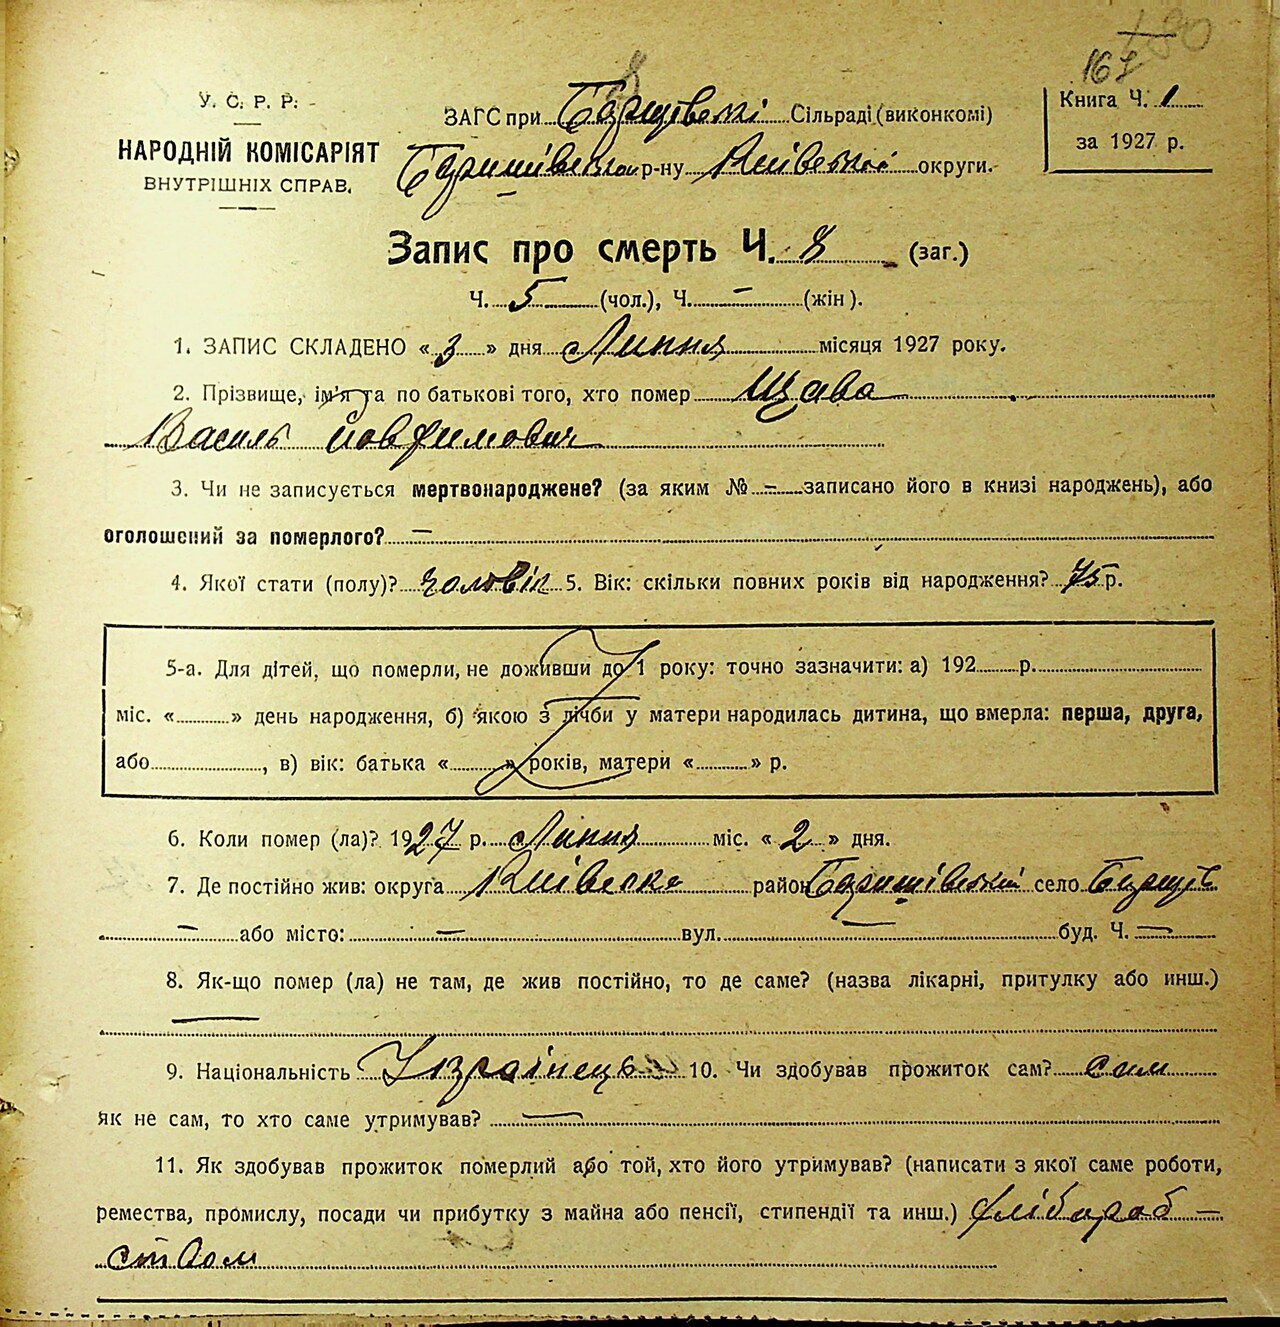 167
У. С. Р. Р.
НАРОДНІЙ КОМІСАРІЯТ
ВНУТРІШНІХ СПРАВ.
ЗАГС при Сільраді (виконкомі)
р-ну Київської округи.
Книга Ч. 1
за 1927 р.
Запис про смерть Ч. 8 (заг.)
Ч. 5 (чол.), Ч. — (жін).
1. ЗАПИС СКЛАДЕНО « 3 » дня Липня місяця 1927 року.
2. Прізвище, ім'я та по батькові того, хто помер Щава
Василь
3. Чи не записується мертвонароджене? (за яким № — записано його в книзі народжень), або
оголошений за померлого? —
4. Якої стати (полу)? чоловік 5. Вік: скільки повних років від народження? 75 р.
5-а. Для дітей, що померли, не доживши до 1 року: точно зазначити: а) 192 р.
міс. « » день народження, б) якою з лічби у матери народилась дитина, що вмерла: перша, друга,
або , в) вік: батька « » років, матери « » р.
6. Коли помер (ла)? 1927 р. Липня міс. « 2 » дня.
7. Де постійно жив: округа Київска район село
— або місто: — вул. — буд. Ч. —
8. Як-що помер (ла) не там, де жив постійно, то де саме? (назва лікарні, притулку або инш.)
—
9. Національність Українець 10. Чи здобував прожиток сам? сам
Як не сам, то хто саме утримував? —
11. Як здобував прожиток померлий або той, хто його утримував? (написати з якої саме роботи,
ремества, промислу, посади чи прибутку з майна або пенсії, стипендії та инш.) хлібороб—
ством